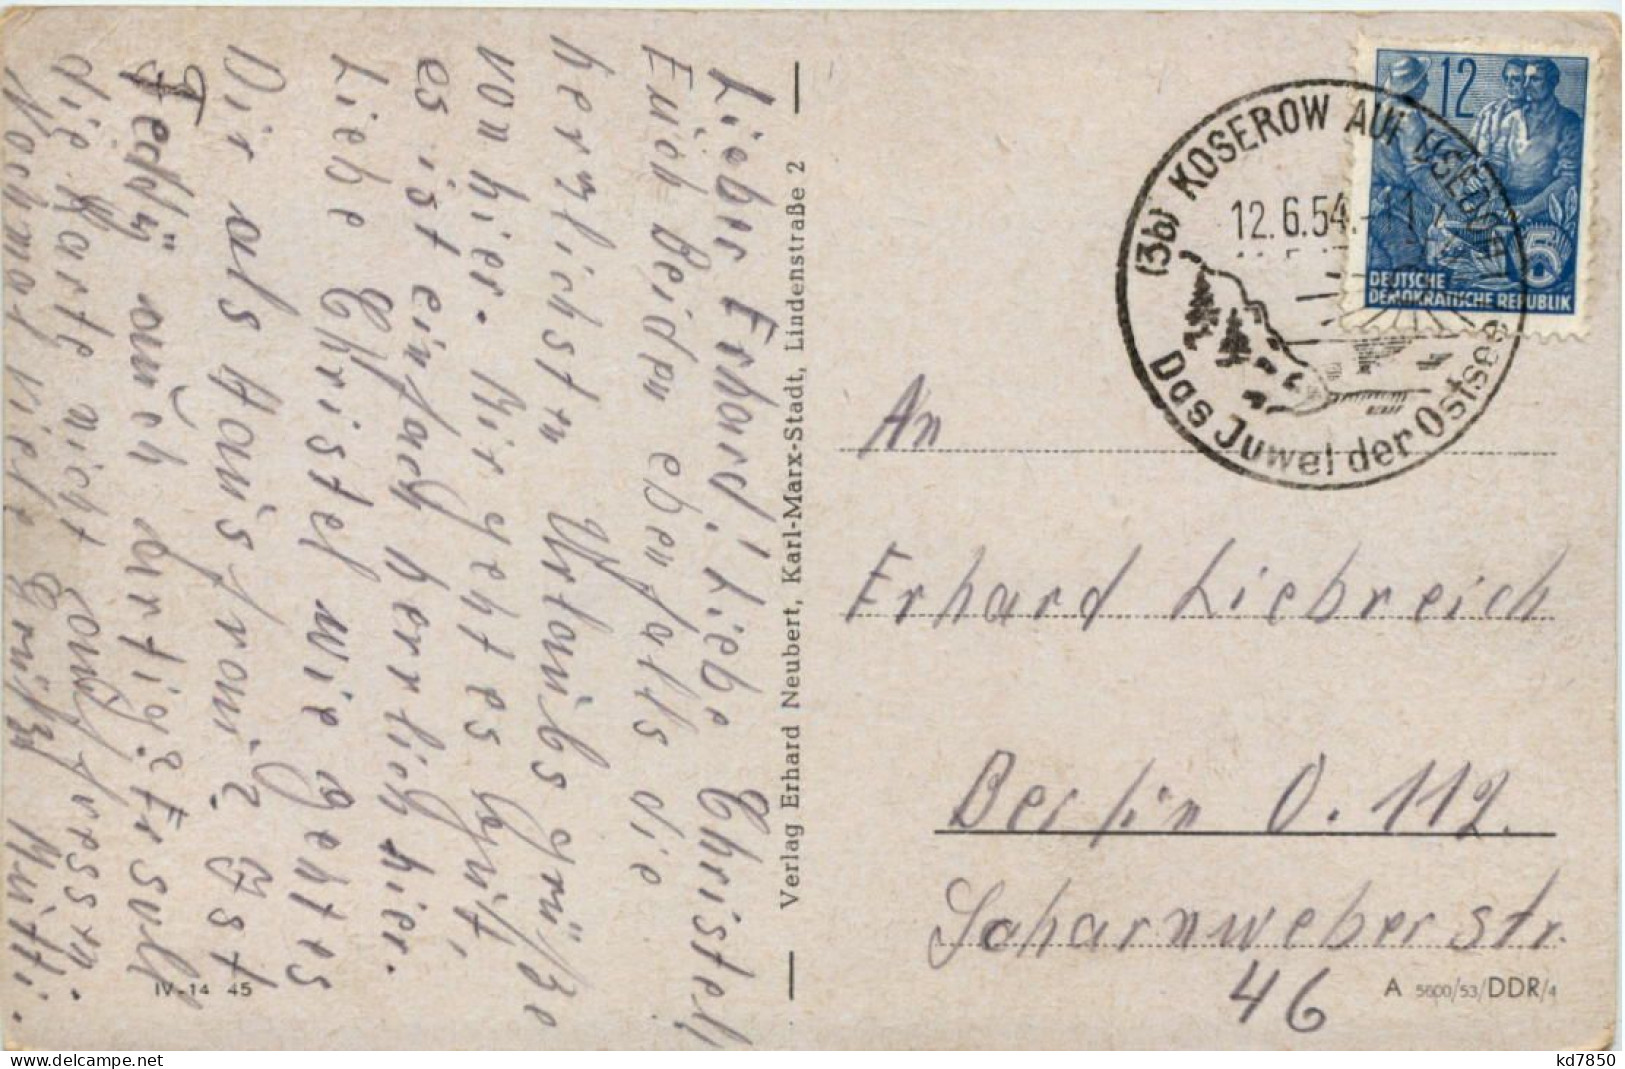 Lieber Erhard! Liebe Christel!
Euch beiden ebenfalls die
herzlichsten Urlaubsgrüße
von hier. Mir geht es gut,
es ist einfach herrlich hier.
Liebe Christel wie geht es
Dir als Hausfrau? Ist
Feddÿ auch artig? Er soll
die Karte nicht auffressen.
Nochmal viele Grüße Mutti.
Verlag Erhard Neubert, Karl-Marx-Stadt, Lindenstraße 2
IV-14 45
12
DEUTSCHE
DEMOKRATISCHE REPUBLIK
5
(3b) KOSEROW AUF USEDOM
12.6.54.-11
Das Juwel der Ostsee
An
Erhard Liebreich
Berlin O. 112.
Scharnweberstr.
46
A 5600/53/DDR/4
delcampe.net
kd7850